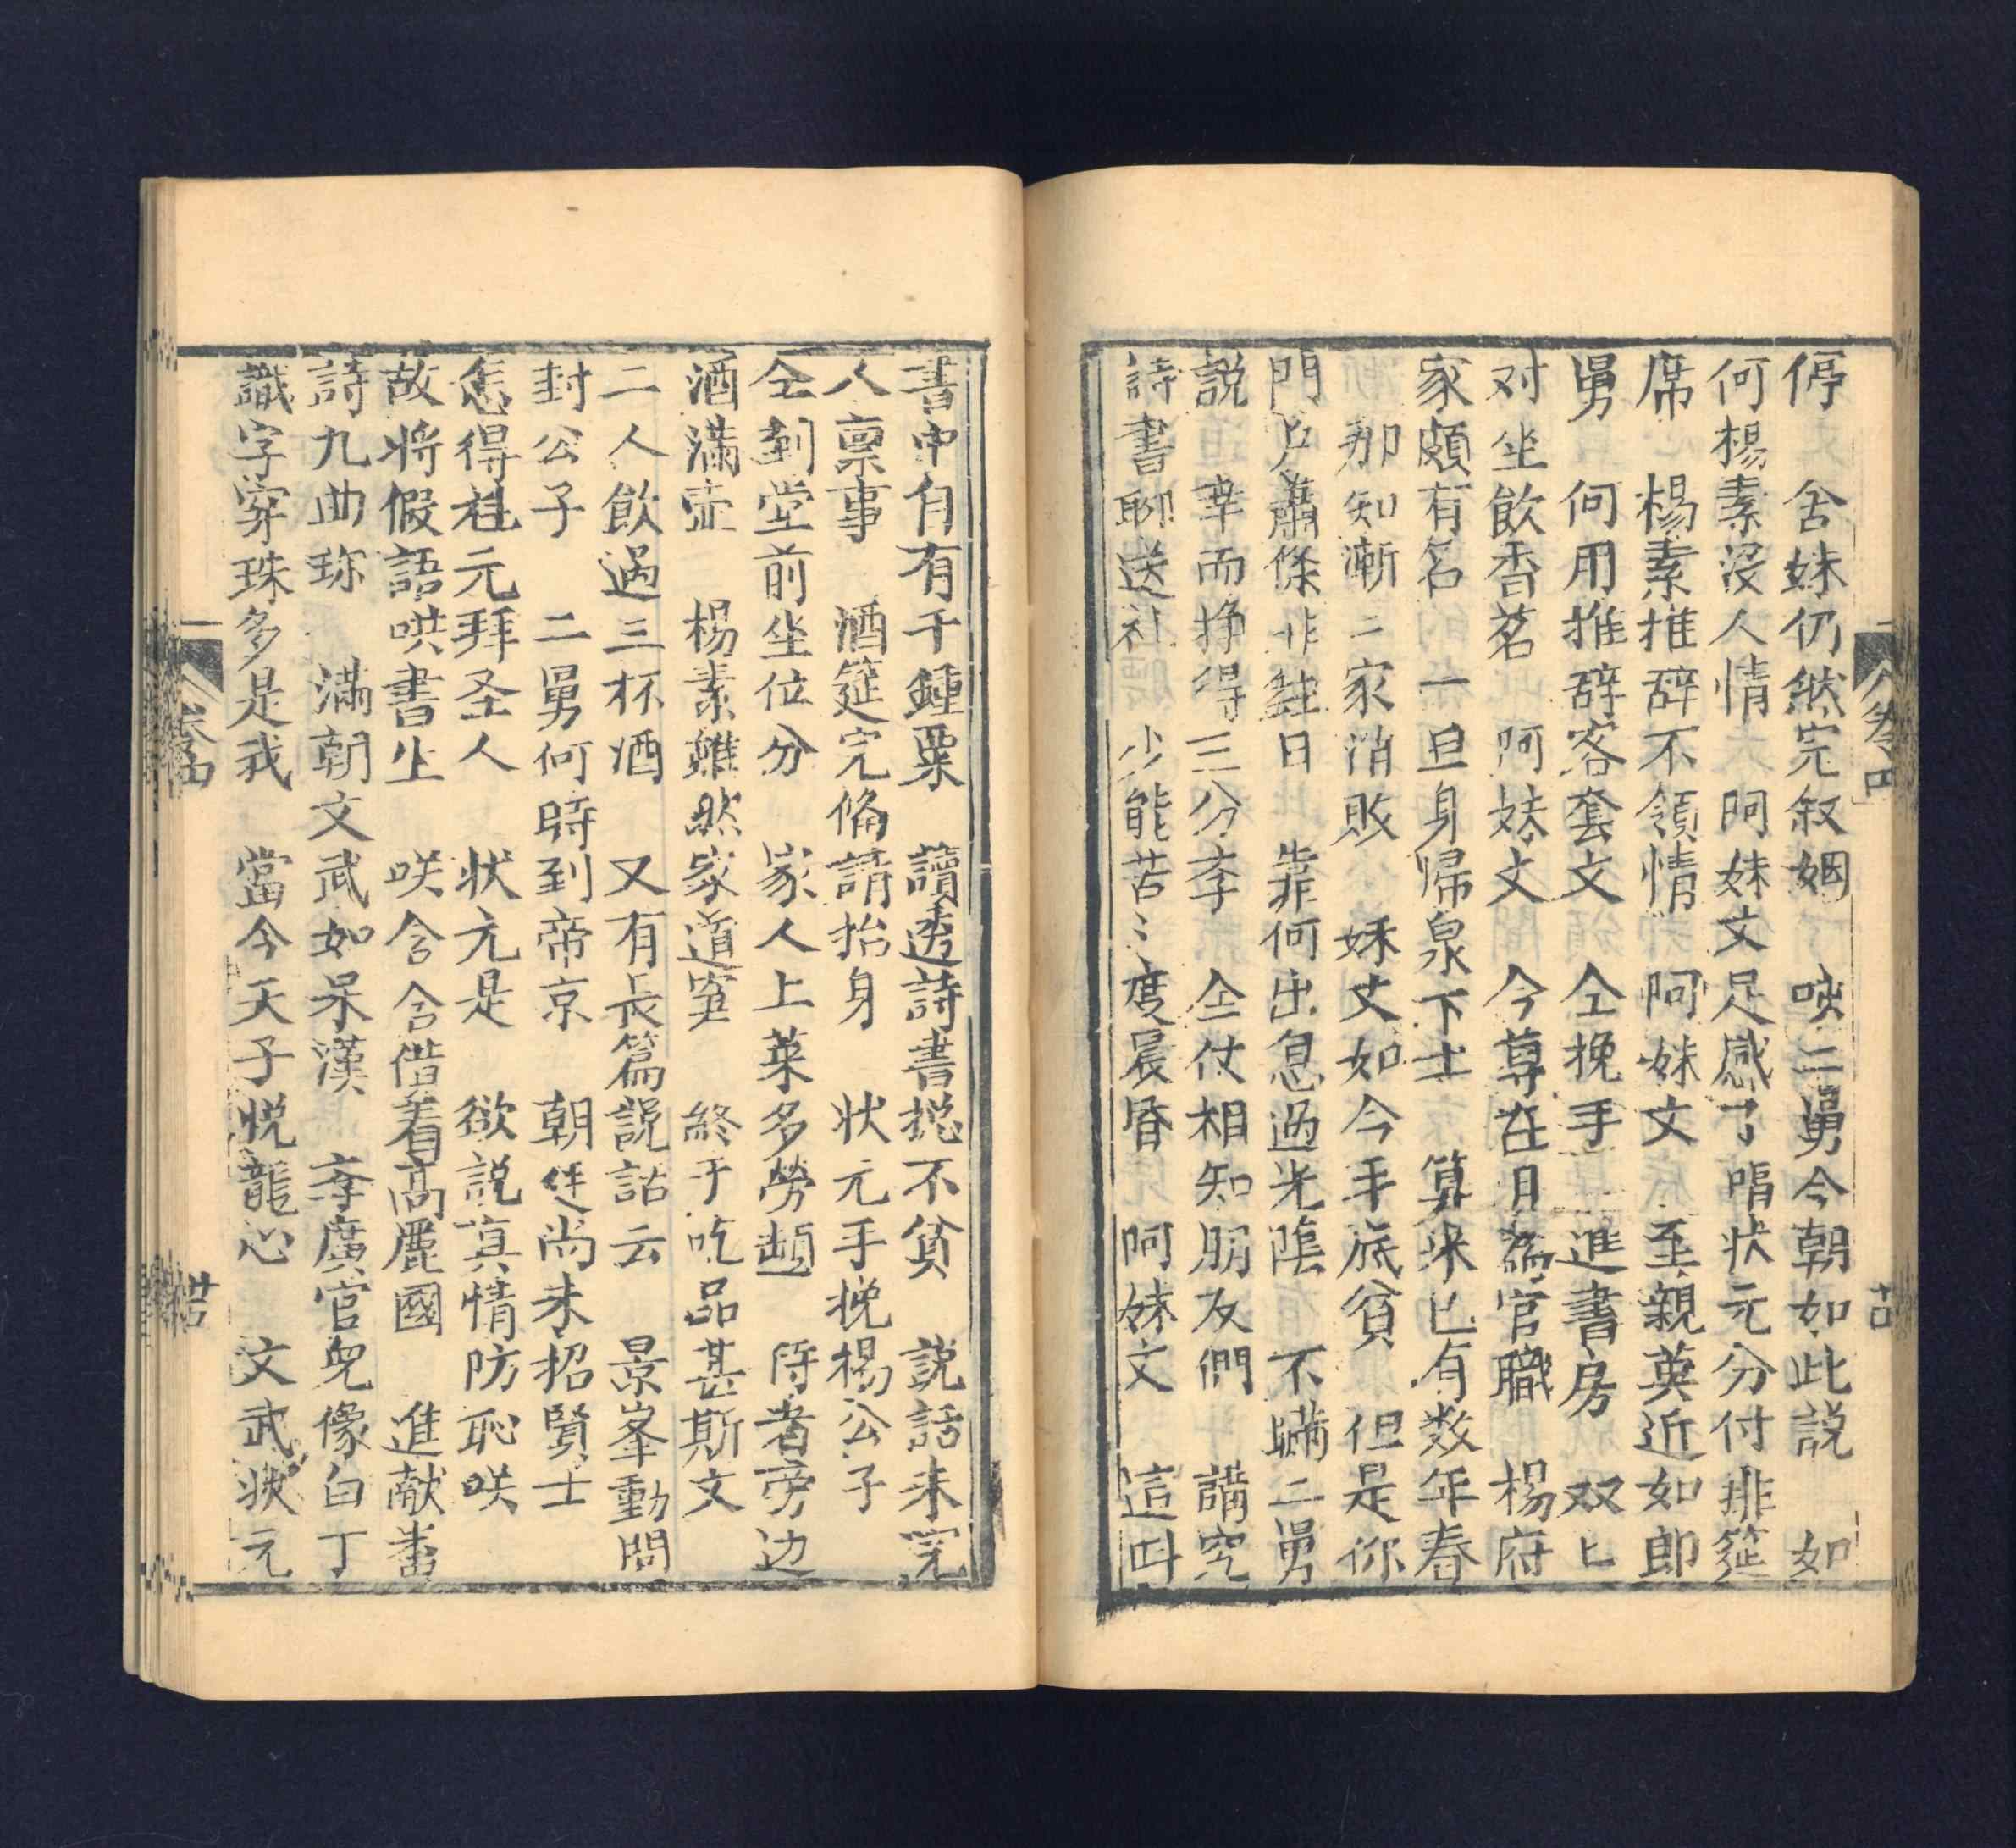 停　舍妹仍然完叙姻　唉二舅今朝如此説　如
何楊素没人情　阿妹丈足感了唱状元分付排筵
席　楊素推辞不領情　阿妹丈　至親英近如郎
舅　何用推辞客套文　仝挽手　進書房　双匕
对坐飲香茗　阿妹丈　今尊在日為官職　楊府
家頗有名　一旦身帰泉下土　算来已有数年春
那知漸二家消敗　妹丈如今手底貧　但是你
門户蕭條非詿日　靠何出息過光隂　不瞞二舅
説　幸而挣得三分李　仝仗相知朋友們　講究
詩書聊送社　少能苦〻度晨昏　阿妹丈　這叫
卷四
書中自有千鍾粟　讀透詩書揔不貧　説話未完
人禀事　酒筵完俻請抬身　状元手挽楊公子
仝到堂前坐位分　家人上菜多勞趣　侍者旁边
酒滿壶　楊素雖然家道窮　終于吃品甚斯文
二人飲過三杯酒　又有長篇説話云　景峯動問
封公子　二舅何時到帝京　朝廷尚未招賢士
怎得魁元拜圣人　状元是　欲説真情防恥咲
故将假語哄書生　咲含含借着高麗國　進献畨
詩九曲珎　滿朝文武如呆漢　李廣官兒像白丁
識字穿珠多是我　當今天子悦龍心　文武状元
卷四